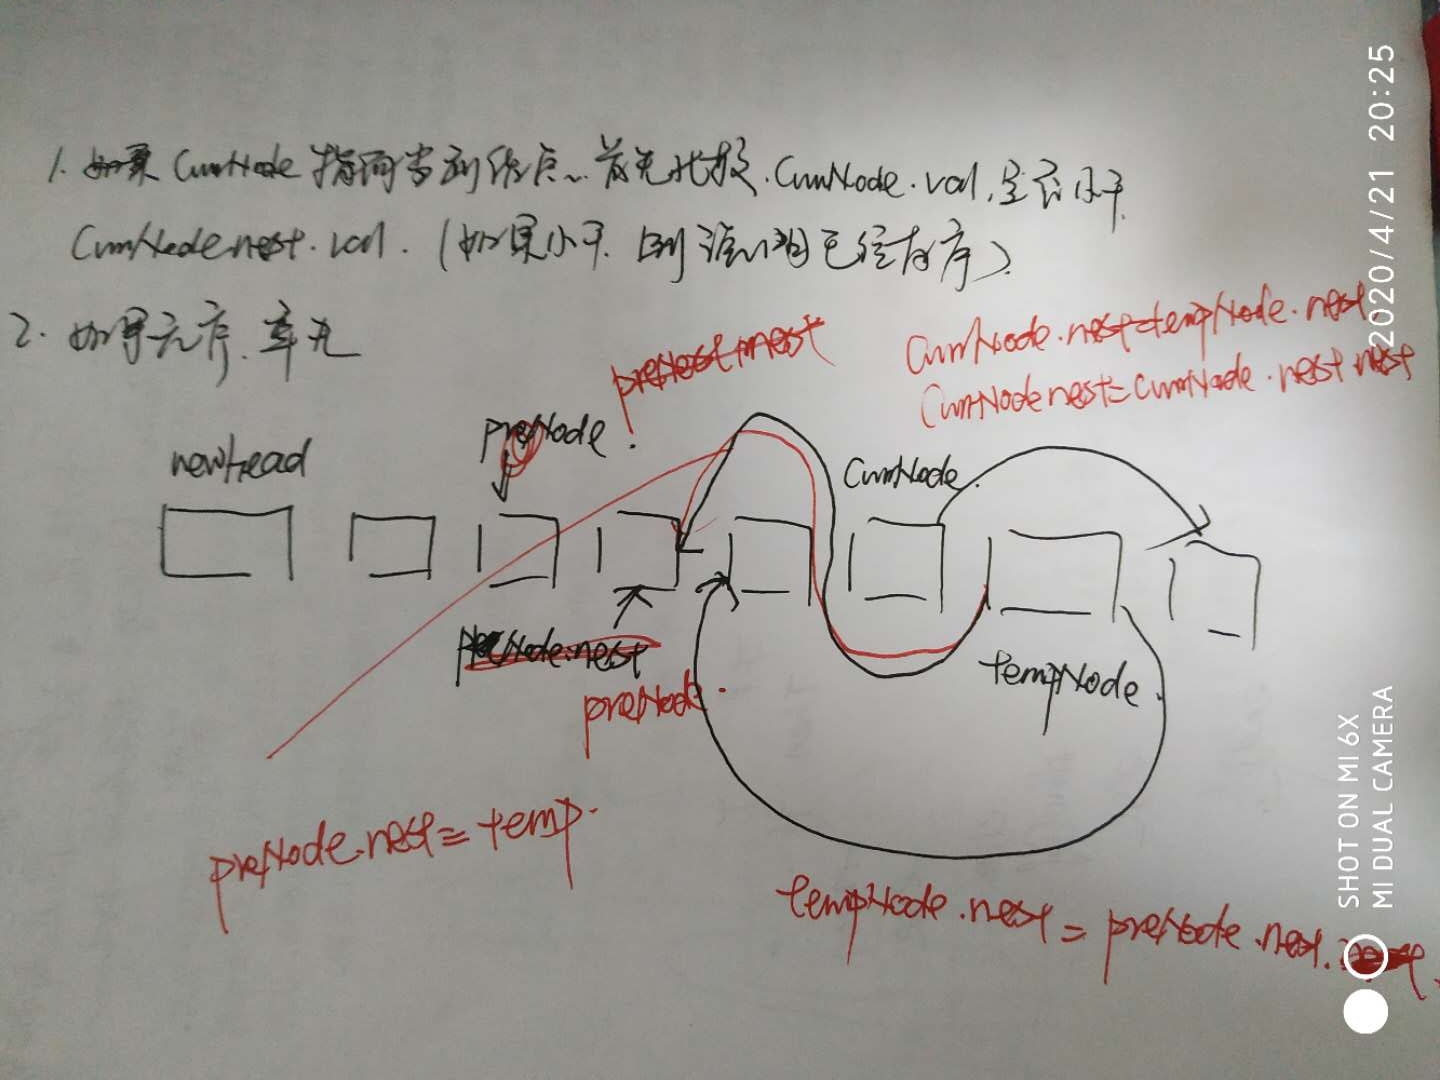 1. 如果 CurrNode 指向当前结点、首先比较.CurrNode.val.是否小于
CurrNode.next.val.(如果小于.则说明已经有序).
2. 如果无序.率先
CurrNode.next=tempNode.next
CurrNode.next=CurrNode.next.next
preNode.
newhead
CurrNode.
preNode.next
preNode.
tempNode.
preNode.next=temp.
tempNode.next=preNode.next.
2020/4/21 20:25
SHOT ON MI 6X
MI DUAL CAMERA